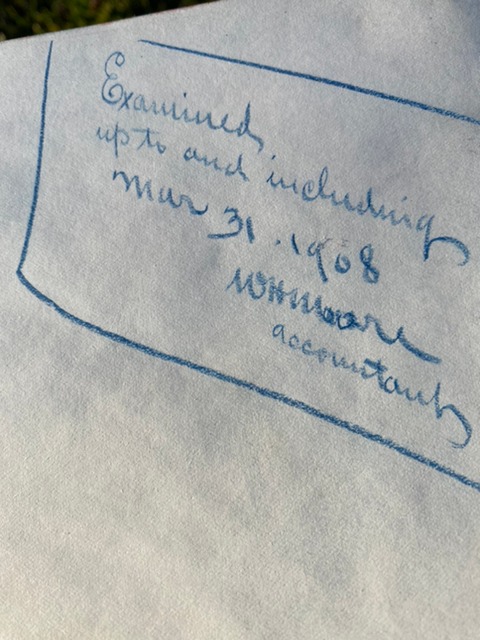 Examined
up to and including
Mar 31. 1908
WHMoore
accountant